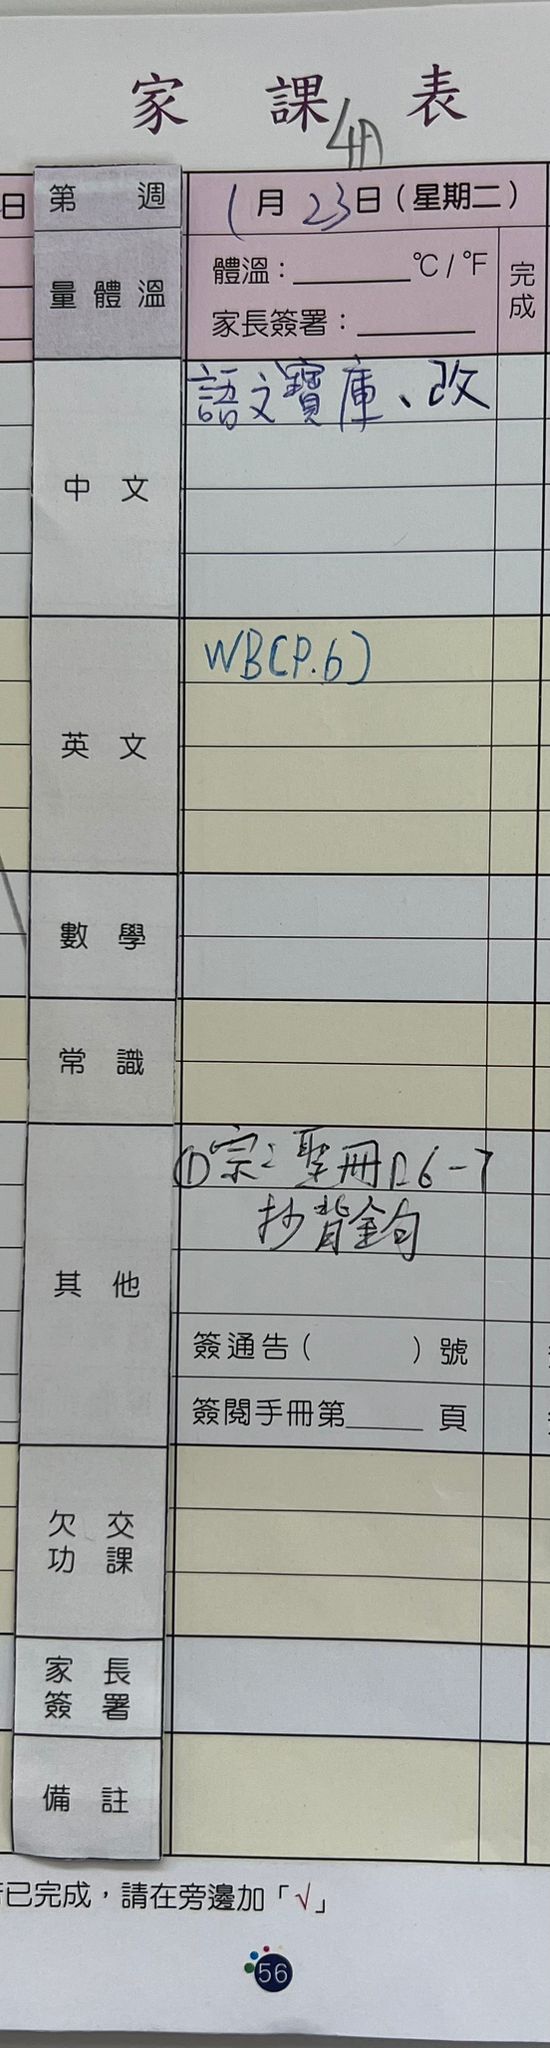 家課表
4A
日
第 週
1月23日(星期二)
量體溫
體溫：______°C/°F
家長簽署：______
完成
中文
語文寶庫、改
英文
WB(P.6)
數學
常識
其他
①宗：聖冊P.6-7
抄背金句
簽通告( )號
簽閱手冊第____頁
欠交功課
家長簽署
備註
已完成，請在旁邊加「√」
56